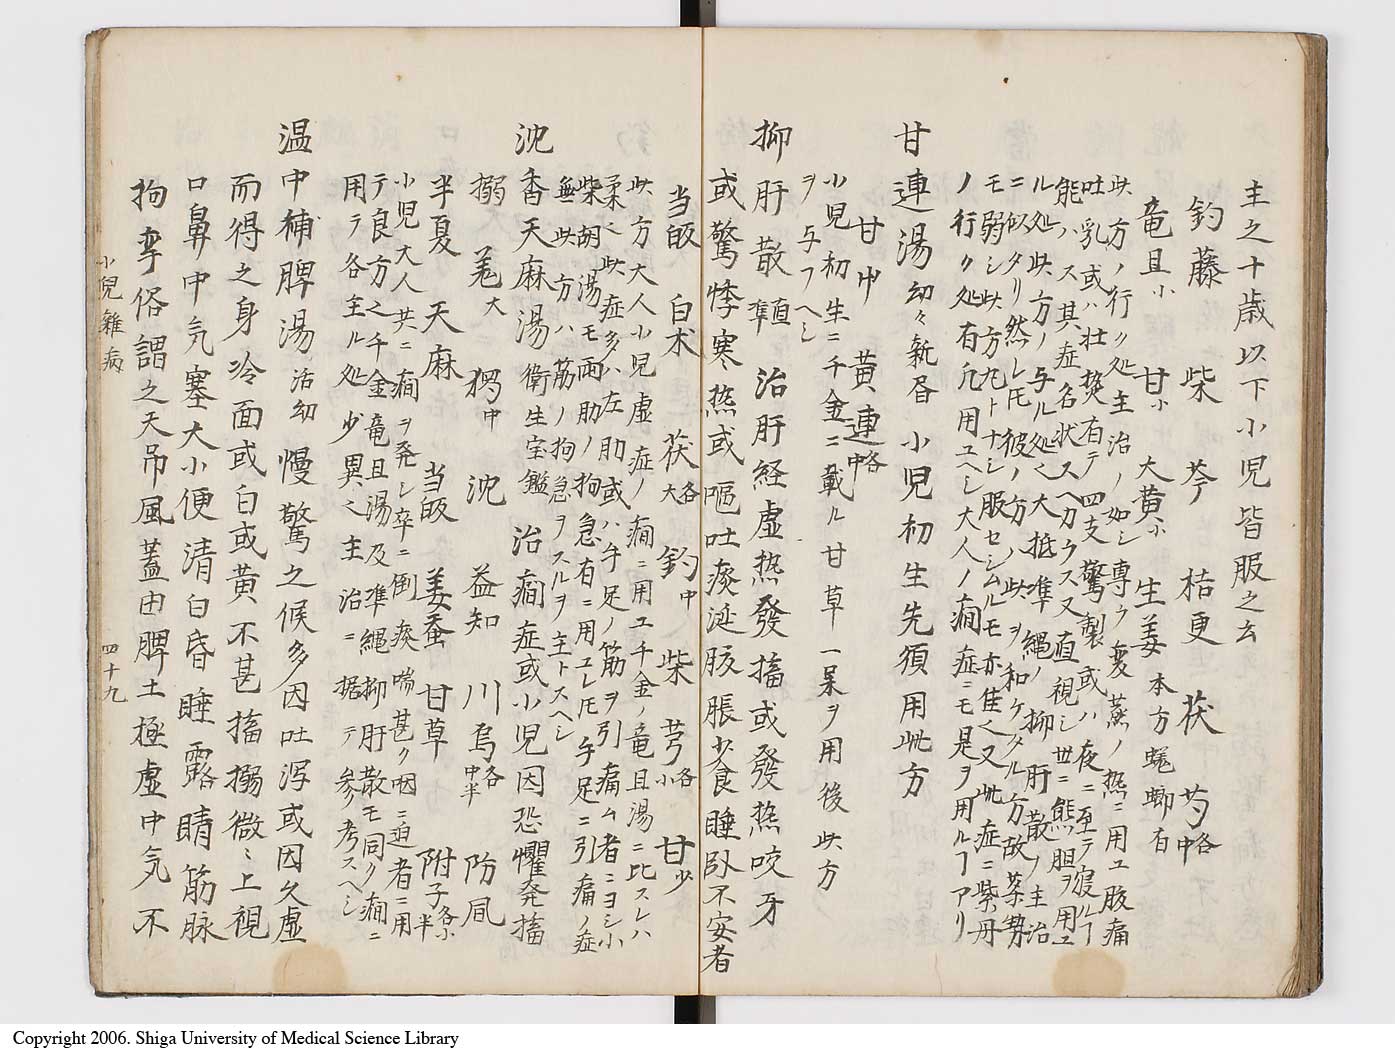 主之十歳以下小児皆服之云
釣藤 柴 芩 桔更 茯 芍各中
竜且小 甘小 大黄小 生姜 本方蜣蜋有
此方ノ行ク処主治ノ如シ専ラ変蒸ノ熱ニ用ユ腹痛
吐乳或ハ壮熱有テ四支驚掣或ハ夜ニ至テ寝ル
能ハス其症名状スヘカラス又直視シ世ニ熊胆ヲ用ユ
ル処此方ノ与ル処ク大抵準縄ノ抑肝散ノ主治
ニ似タリ然レ𪜈彼ノ方ノ此ヲ和ケタル方故薬勢
モ弱シ此方丸トナシ服セシムルモ亦佳ク又此症ニ紫丹
ノ行ク処有凢用ユヘシ大人ノ癇症ニモ是ヲ用ルヿアリ
甘連湯 幼々新居 小児初生先須用此方
甘中 黄連各中
小児初生ニ千金ニ載ル甘草一杲ヲ用後此方
ヲ与フヘシ
抑肝散 準直 治肝経虚熱發搐或發熱咬牙
或驚悸寒熱或嘔吐痰涎腹脹少食睡卧不安者
当皈 白术 茯各大 釣中 柴 芎各小 甘少
此方大人小児虚症ノ癇ニ用ユ千金ノ竜且湯ニ比スレハ
柔ク此症多ハ左肋或ハ手足ノ筋ヲ引痛ム者ニヨシ小
柴胡湯モ両肋ノ拘急有ニ用ユレ𪜈手足ニ引痛ノ症
無此方ハ筋ノ拘急ヲスルヲ主トスヘシ
沈香天麻湯 衛生宝鑑 治癇症或小児因恐懼発搐
搦 羗大 獨中 沈 益知 川烏各中半 防凬
半夏 天麻 当皈 姜蚕 甘草 附子各小半
小児大人共ニ癇ヲ発シ卒ニ倒痰喘甚ク咽ニ迫者ニ用
テ良方之千金竜且湯及準縄抑肝散モ同ク癇ニ
用テ各主ル処少異之主治ニ据テ参考スヘシ
温中補脾湯 活幼 慢驚之候多因吐瀉或因久虚
而得之身冷面或白或黄不甚搐搦微ミ上視
口鼻中気塞大小便清白昏睡露睛筋脉
拘挛俗謂之天吊風蓋由脾土極虚中気不
小児雜病
四十九
Copyright 2006. Shiga University of Medical Science Library